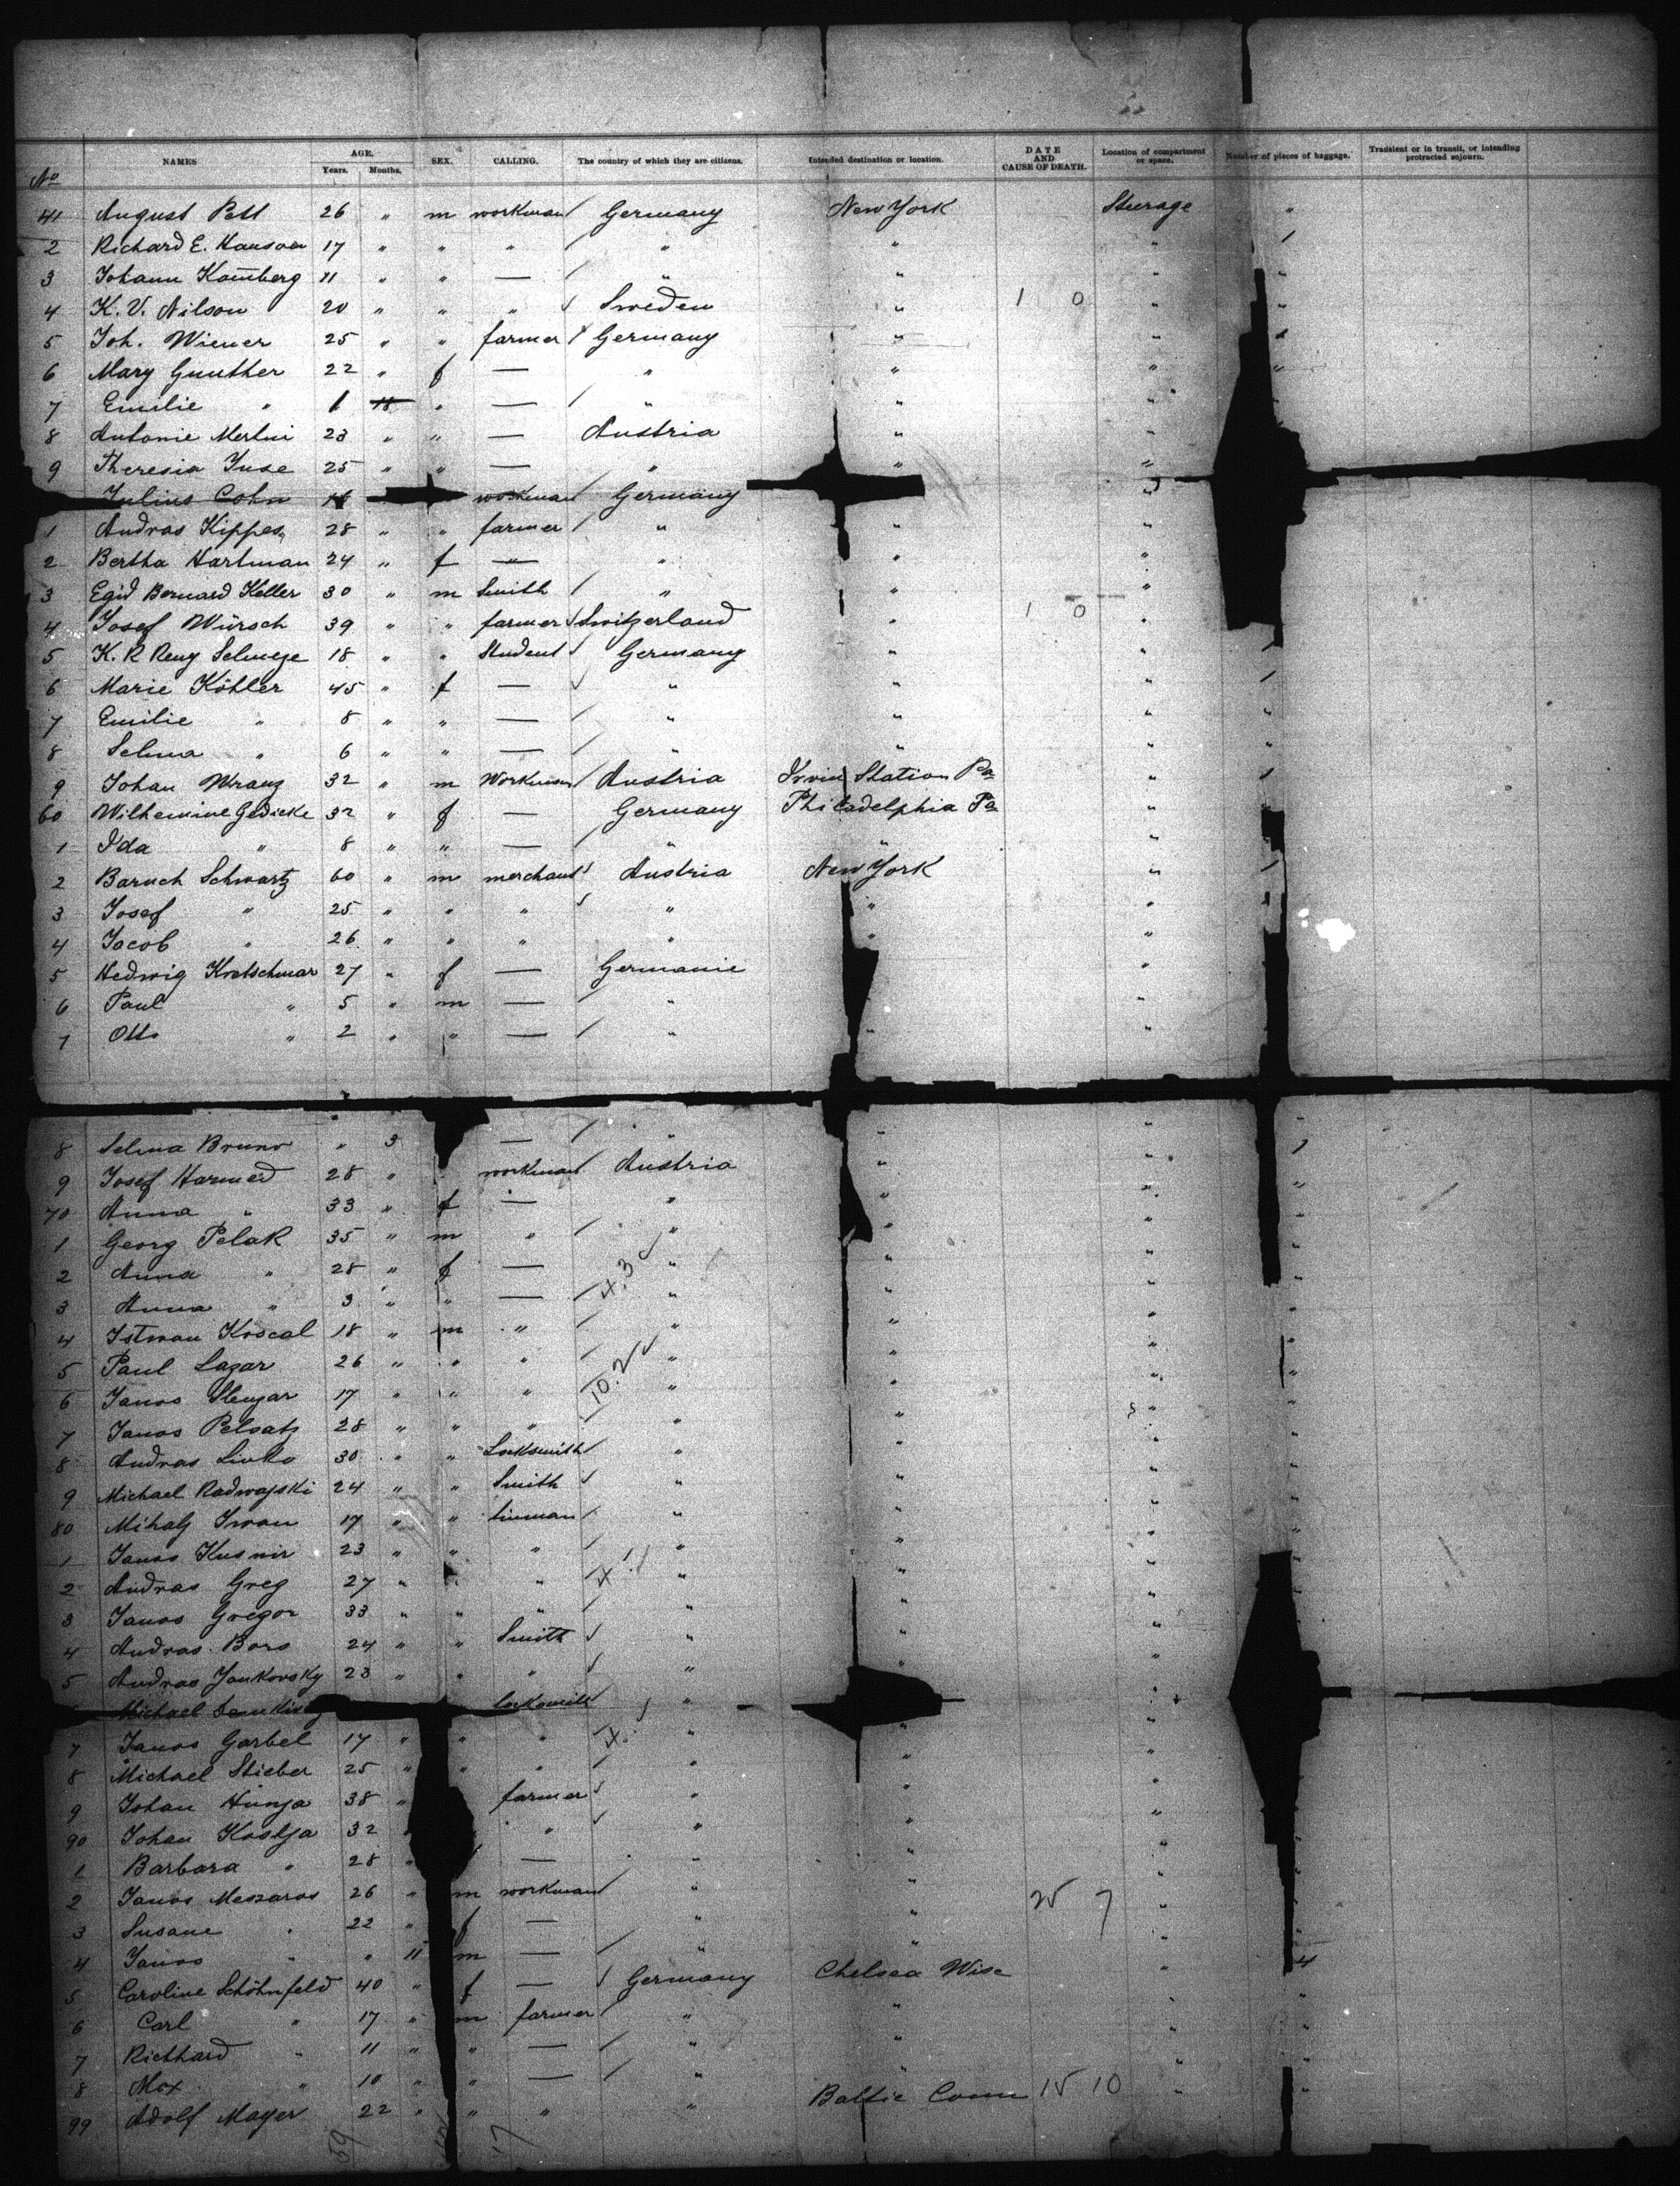 No NAMES AGE. Years. Months. SEX. CALLING. The country of which they are citizens. Intended destination or location. DATE AND CAUSE OF DEATH. Location of compartment or space. Number of pieces of baggage. Transient or in transit, or intending protracted sojourn.
41 August Pett 26 " m workman / Germany New York Sterage "
2 Richard E. Hanson 17 " " " / " " " 1
3 Johann Komberg 11 " " — / " " " "
4 K. V. Nilson 20 " " " √ Sweden " 1 0 " "
5 Joh. Wiener 25 " " farmer / Germany " " 1
6 Mary Gunther 22 " f — " " " "
7 Emilie " 1 18 " — / " " "
8 Antonie Mertni 23 " " — Austria " "
9 Theresia Juse 25 " " — " " "
Julius Cohn 16 workman Germany "
1 Andras Kippes 28 " " farmer / " " "
2 Bertha Hartman 24 " f — " " "
3 Egid Bernard Keller 30 " m Smith / " " "
4 Josef Würsch 39 " " farmer √ Switzerland " 1 0 "
5 K. R Reny Selmeze 18 " " Student √ Germany " " 1
6 Marie Köhler 45 " f — √ " " " 1
7 Emilie " 8 " " — / " " " "
8 Selma " 6 " " — / " " " "
9 Johan Wranz 32 " m Workman Austria Irwin Station Pa " 1
60 Wilhemine Gedicke 32 " f — Germany Philadelphia Pa "
1 Ida " 8 " " — / " " "
2 Baruch Schwartz 60 " m merchant √ Austria New York " 1
3 Josef " 25 " " " √ " " "
4 Jacob " 26 " " " " " "
5 Hedwig Kretschmar 27 " f — Germanie "
6 Paul " 5 " m — / " "
7 Otto " 2 " " — / " " "
8 Selma Bruno " 3 — / " " " 1
9 Josef Harmed 28 " workman Austria " " "
70 Anna " 33 " f — " " " "
1 Georg Pelak 35 " m " / " " " "
2 Anna " 28 " f — " " " "
3 Anna " 3 " " — / " " " "
4 Istwan Koscal 18 " m " / " " " "
5 Paul Lazar 26 " " " / " " " "
6 Janos Slenzar 17 " " " " " " "
7 Janos Pelsatz 28 " " " / " " " "
8 Andras Livko 30 " " Locksmith / " " " "
9 Michael Radwajski 24 " " Smith √ " " " "
80 Mihaly Iwan 17 " " tinman / " " " "
1 Janos Kusnir 23 " " " / " " " "
2 Andras Greg 27 " " " " " "
3 Janos Gregor 33 " " " / " " "
4 Andras Boro 24 " " Smith √ " " "
5 Andras Jankovsky 23 " " " √ " " "
Michael locksmith "
7 Janos Garbel 17 " " " " " "
8 Michael Stieber 25 " " " / " " "
9 Johan Hunja 38 " farmer √ " " "
90 Johan Kostja 32 " √ " " "
1 Barbara " 28 " — " " "
2 Janos Meszaros 26 " m workman / " " 25 7 "
3 Susane " 22 " f — " " " "
4 Janos " " 11 m — / " " " 4
5 Caroline Schöhnfeld 40 " f — √ Germany Chelsea Wisc " "
6 Carl " 17 " m farmer / " " " "
7 Richhard " 11 " " — / " " " "
8 Max " 10 " " — / " " " "
99 Adolf Mayer 22 " " " " Baltic Conn 15 10 "
59 17